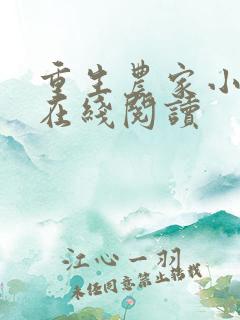 重生農家小
在綫閱讀
江心一羽
未经同意禁止转载